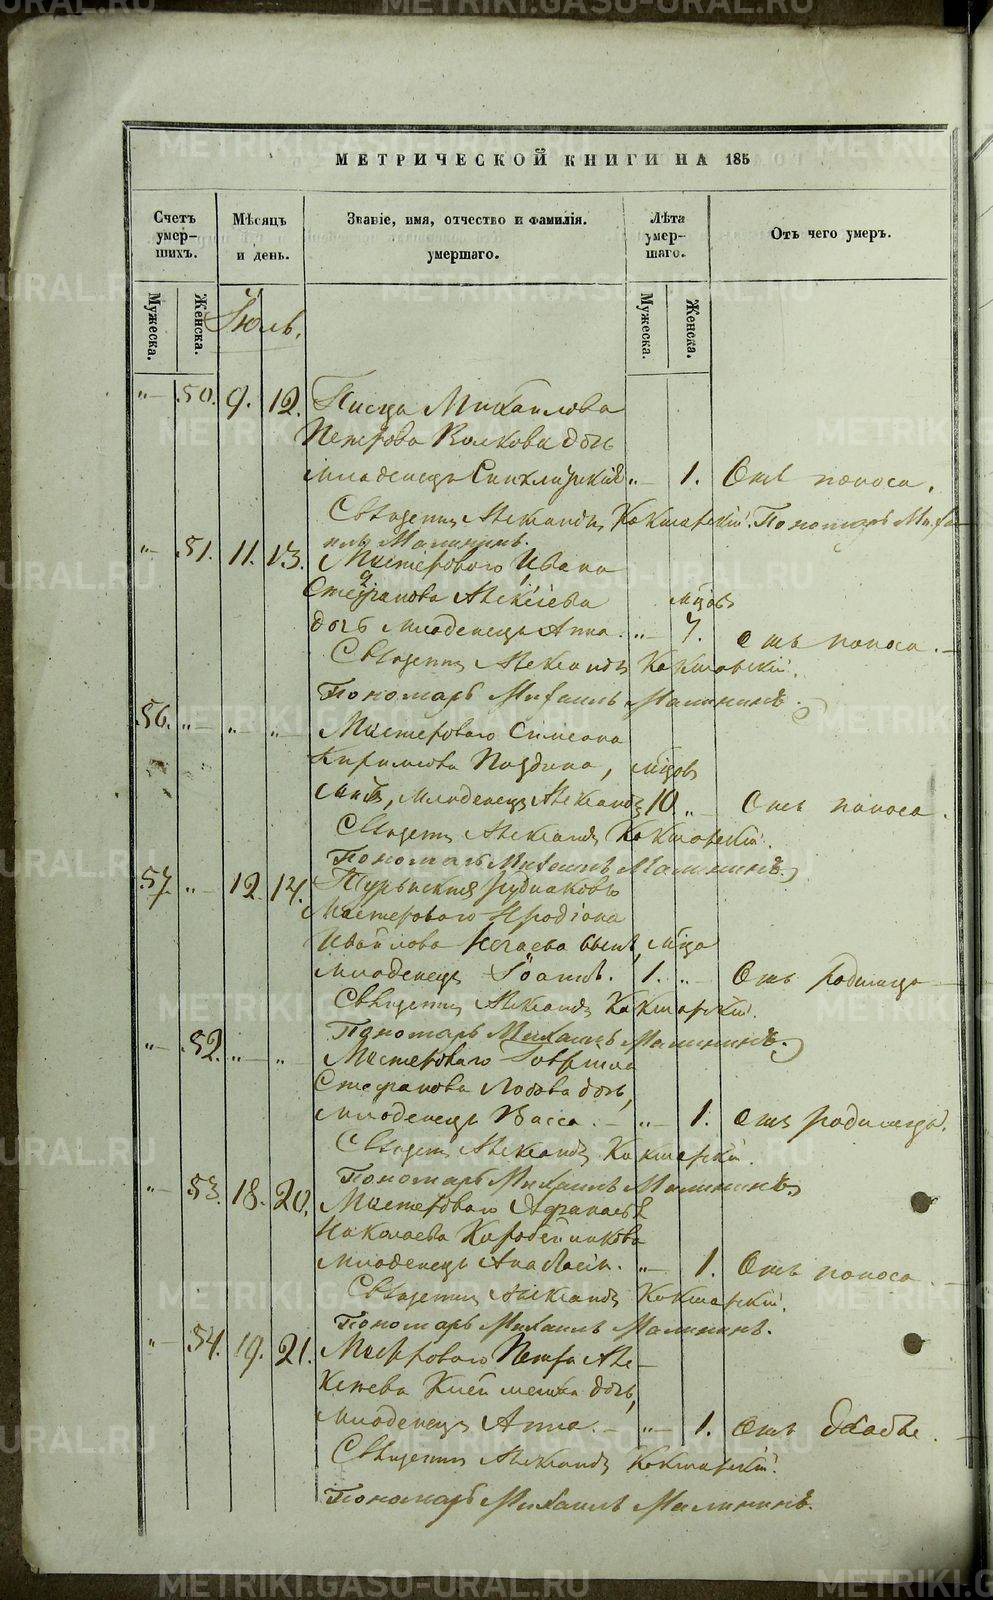 METRIKI.GASO-URAL.RU
МЕТРИЧЕСКОЙ КНИГИ НА 185
Счетъ умер-шихъ.
Мѣсяцъ и день.
Званіе, имя, отчество и фамилія. умершаго.
Лѣта умер-шаго.
Отъ чего умеръ.
Мужеска.
Женска.
Мужеска.
Женска.
Июль.
"— 50. 9. 12. Писца Михаилова
Петрова Волкова дочь
младенецъ "— 1. Отъ поноса.
Священникъ Александръ Кокшарскій. Пономарь Миха-
илъ Малининъ.
"— 51. 11. 13. Мастероваго Ивана
Стефанова Алексѣева мѣсяцовъ
дочь младенецъ Анна. "— 7. Отъ поноса.—
Священникъ Александръ Кокшарскій.
Пономарь Михаилъ Малининъ.
56. "— " " Мастероваго Симеона
Кирилова мѣсяцовъ
сынъ, младенецъ Александръ 10 "— Отъ поноса.
Священникъ Александръ Кокшарскій.
Пономарь Михаилъ Малининъ.
57. "— 12. 14. Турьинскихъ Рудниковъ
Мастероваго Иродіона
сынъ, мѣсяца
младенецъ Іоаннъ. 1. "— Отъ родимца—
Священникъ Александръ Кокшарскій.
Пономарь Михаилъ Малининъ.
"— 52. "— " Мастероваго Гавріила
Стефанова дочь,
младенецъ Васса.— "— 1. Отъ родимца.
Священникъ Александръ Кокшарскій.
Пономарь Михаилъ Малининъ.
"— 53. 18. 20. Мастероваго Афанасія
Николаева Коробейникова
младенецъ Анастасія. "— 1. Отъ поноса.
Священникъ Александръ Кокшарскій.
Пономарь Михаилъ Малининъ.
"— 54. 19. 21. Мастероваго Петра Але-
дочь,
младенецъ Анна.— "— 1. Отъ
Священникъ Александръ Кокшарскій.
Пономарь Михаилъ Малининъ.